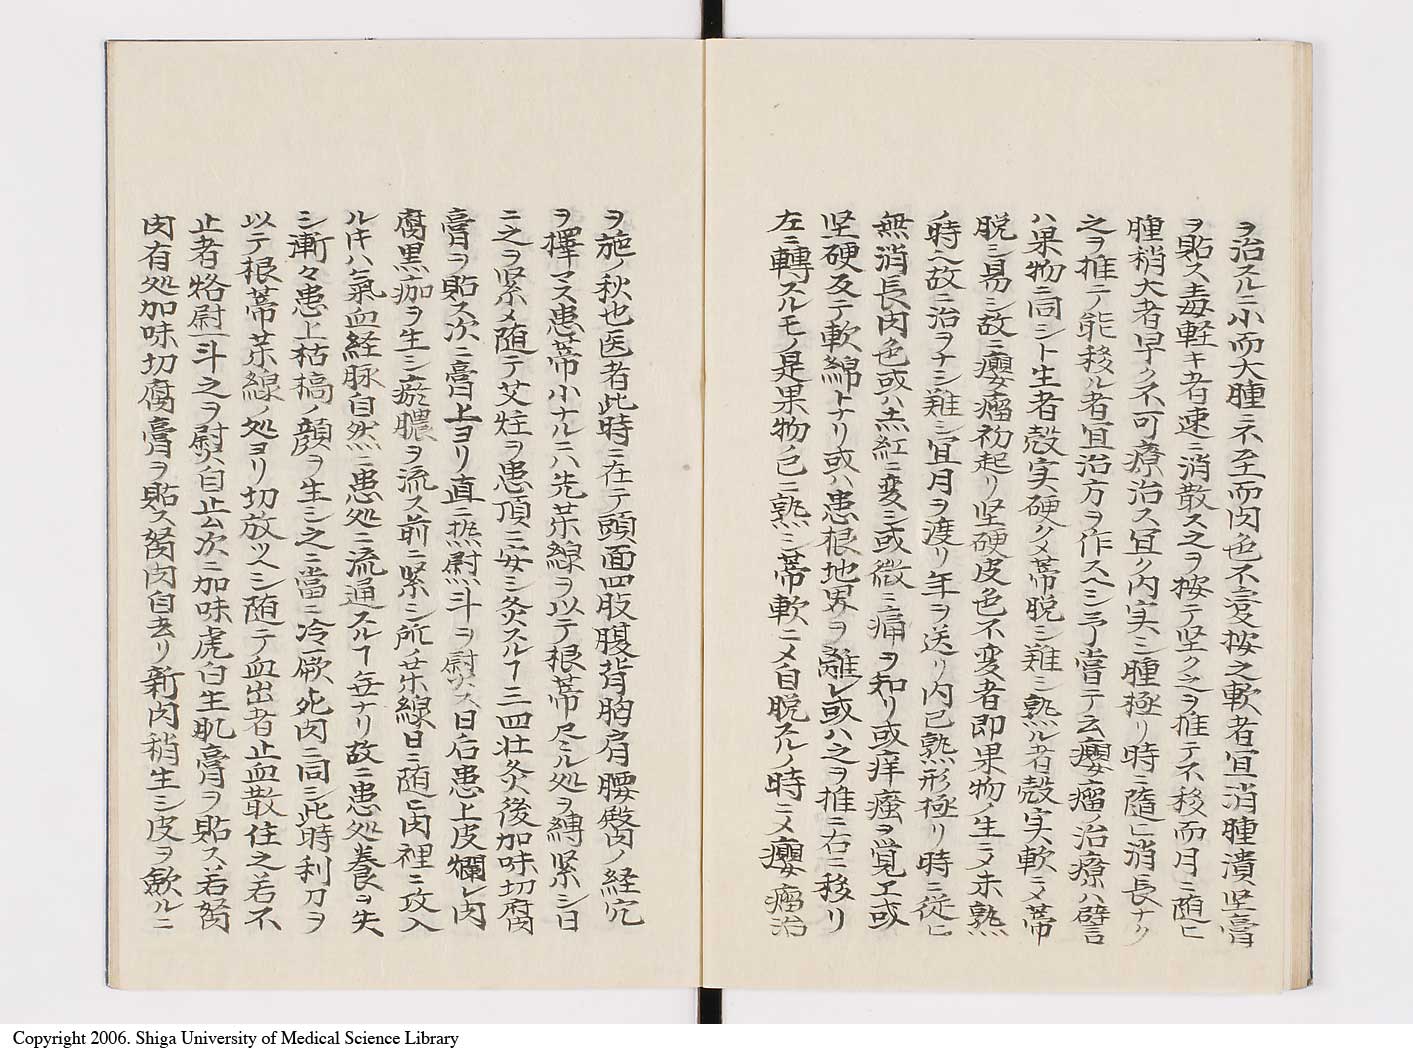 ヲ治スルニ小而大腫ニ不至而肉色不変按之軟者宜消腫潰堅膏
ヲ貼ス毒軽キ者速ニ消散ス之ヲ按テ坚ク之ヲ推テ不移而月ニ随ヒ
腫稍大者早ク不可療治ス宜ク内実シ腫極リ時ニ隨ヒ消長ナク
之ヲ推テ能移ル者宜治方ヲ作スヘシ予嘗テ云癭瘤ノ治療ハ譬
ハ果物ニ同シト生者殻実硬クメ蒂脱シ難シ熟ル者殻実軟ニメ蒂
脱シ易シ故ニ癭瘤初起リ坚硬皮色不変者即果物ノ生ニメ未熟
ノ時ヘ故ニ治ヲナシ難シ宜月ヲ渡リ年ヲ送リ内已熟形極リ時ニ従ヒ
無消長肉色或ハ黒紅ニ変シ或微ニ痛ヲ知リ或痒癢ヲ覚ヱ或
坚硬反テ軟綿トナリ或ハ患根地界ヲ離レ或ハ之ヲ推ニ右ニ移リ
左ニ轉スルモノ是果物ノ已ニ熟シ蒂軟ニメ自脱スルノ時ニメ癭瘤治
ヲ施ノ秋也医者此時ニ在テ頭面四肢腹背胸肩腰臀ノ経穴
ヲ擇マス患蒂小ナルニハ先芫線ヲ以テ根蒂尽ル処ヲ縛緊シ日
ニ之ヲ緊メ随テ艾炷ヲ患頂ニ安シ灸スルヿ三四壮灸後加味切腐
膏ヲ貼ス次ニ膏上ヨリ直ニ热尉斗ヲ熨ス日后患上皮爛レ肉
腐黒痂ヲ生シ瘀膿ヲ流ス前ニ緊シ所ノ芫線日ニ随ヒ肉裡ニ攻入
ル𪜈ハ氣血経脉自然ニ患処ニ流通スルヿ無ナリ故ニ患処養ヲ失
シ漸々患上枯槁ノ顔ヲ生シ之ニ當ニ冷厥死肉ニ同シ此時利刀ヲ
以テ根蒂芫線ノ処ヨリ切放ツヘシ随テ血出者止血散住之若不
止者烙尉斗之ヲ熨ス自止ム次ニ加味虎白生肌膏ヲ貼ス若胬
肉有処加味切腐膏ヲ貼ス胬肉自去リ新肉稍生シ皮ヲ歛ルニ
Copyright 2006. Shiga University of Medical Science Library